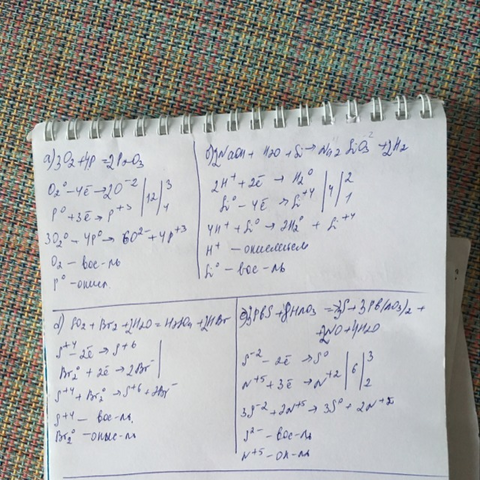 а) 3O₂+4P=2P₂O₃
O₂⁰ -4ē→2O⁻² | 12 | 3
P⁰ +3ē → P⁺³ | | 4
3O₂⁰ -4P⁰ → 6O²⁻ + 4P⁺³
O₂ - вос-ль
P⁰ - окисл
2NaOH + H₂O + Si → Na₂SiO₃ + 2H₂
2H⁺ + 2ē → H₂⁰ | 4 | 2
Si⁰ - 4ē → Si⁺⁴ | | 1
4H⁺ + Si⁰ → 2H₂⁰ + Si⁺⁴
H⁺ - окислитель
Si⁰ - вос-ль
SO₂ + Br₂ + 2H₂O = H₂SO₄ + 2HBr
S⁺⁴ - 2ē → S⁺⁶
Br₂⁰ + 2ē → 2Br⁻
S⁺⁴ + Br₂⁰ → S⁺⁶ + 2Br⁻
S⁺⁴ - вос-ль
Br₂⁰ - окис-ль
3PbS + 8HNO₃ = 3S + 3Pb(NO₃)₂ +
2NO + 4H₂O
S⁻² - 2ē → S⁰ | 6 | 3
N⁺⁵ + 3ē → N⁺² | | 2
3S⁻² + 2N⁺⁵ → 3S⁰ + 2N⁺²
S²⁻ - вос-ль
N⁺⁵ - ок-ль